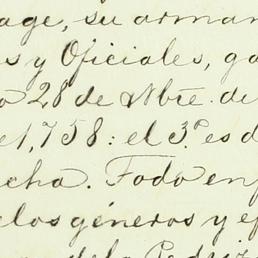 age, su arman
s y Oficiales, ga
o 28 de Nbre. de
e 1,758: el 3.º es d
echa. Todo en p
elos géneros y ef
de la Pedriz